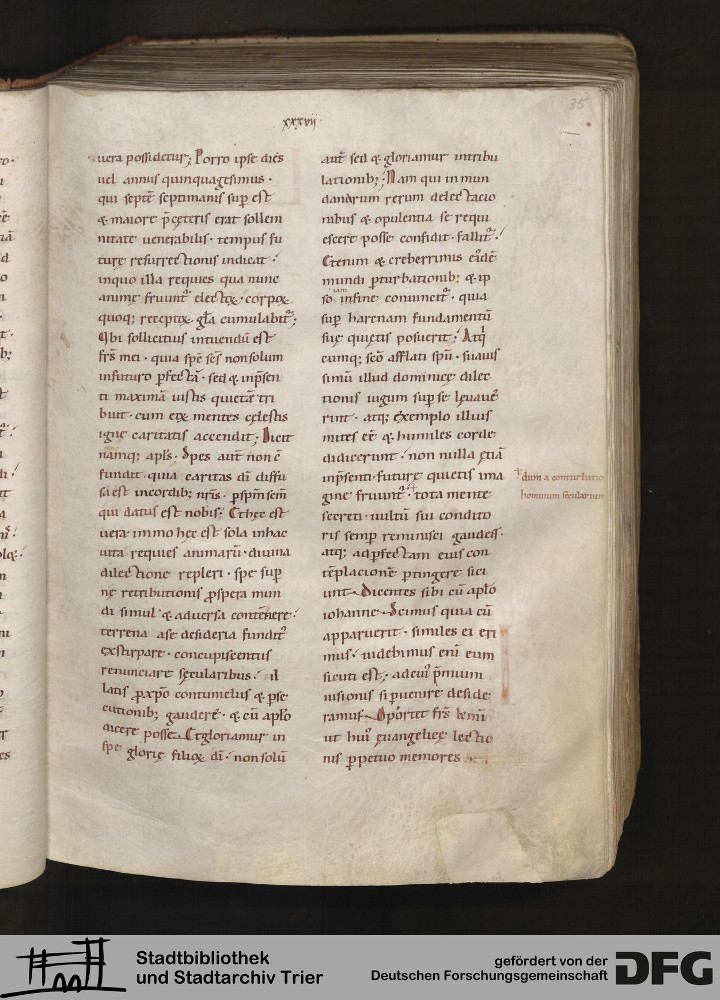 35
xxxvii
uera possidetur; Porro ipse dies
uel annus quinquagesimus.
qui septē septimanis sup est
& maiore p̄ çeteris erat sollem
nitate uenerabilis. tempus fu
turę resurrectionis indicat.
inquo illa requies qua nunc
animę fruunt᷑ electꝝ. corpoꝝ
quoq; receptꝝ. gła cumulabit᷑;
Ubi sollicitius intuendū est
fr̄s mei. quia spē sc̄s nonsolum
infuturo ꝑfectā. sed & inp̄sen
ti maximā iustis quietē tri
buit. cum eoꝝ mentes cęlestis
igne caritatis accendit; Dicit
namq; apłs. Spes aut̄ non c̄
fundit. quia caritas dī diffu
sa est incordib; nr̄is. ꝑ spm̄ sc̄m
qui datus est nobis; Et hęc est
uera immo hęc est sola inhac
uita requies animarū. diuina
dilectione repleri. spe sup
nę retributionis ꝓspera mun
di simul & aduersa contēnere.
terrena a se desideria fundit᷑
exstirpare. concupiscentiis
renunciare sęcularibus. il
latis ꝓ xp̄o contumeliis & pse
cutionib; gaudere. & cū apło
dicere posse. Et gloriamur in
spe glorię filioꝝ dī. non solū
aut̄ sed & gloriamur intribu
lationib;; Nam qui inmun
danarum rerum delectacio
nibus & opulentia se requi
escere posse confidit. fallit᷑.
Etenim & creberrimis eiꝰdē
mundi ꝑturbationib; & ip
so iam infine conuincit᷑. quia
sup harenam fundamentū
suę quietis posuerit. Atq̄
cumq; sc̄o afflati spū. suauis
simū illud dominicę dilec
tionis iugum sup se leuaue
rint. atq; exemplo illius
mites ēē & humiles corde
didicerunt. non nulla etiā
inp̄senti. futurę quietis ima
gine fruunt᷑. tota mente
secreti. uultū sui condito
ris semp reminisci gaudes.
atq; ad ꝑfectam eius con
tēplacionē ꝑtingere sici
unt. Dicentes sibi cū apło
iohanne. Scimus quia cū
apparuerit. similes ei eri
mus. uidebimus enī eum
sicuti est; ad eiuꝰ p̄mium
uisionis si puenire deside
ramus. Oportet fr̄s kmī
ut huiꝰ ęuangelicę lectio
nis ꝑpetuo memores
dum a conturbatio
hominum secularium
Stadtbibliothek
und Stadtarchiv Trier
gefördert von der
Deutschen Forschungsgemeinschaft
DFG